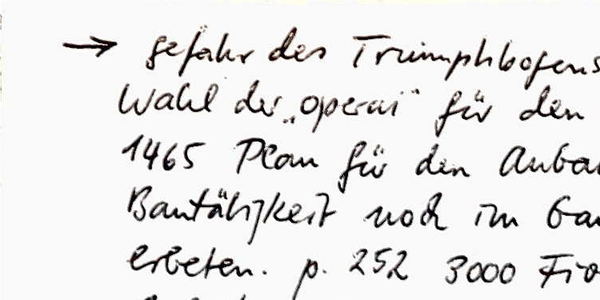 → gefahr des Triumphbogens
Wahl der „operai" für den
1465 Plan für den Anbau
Bautätigkeit noch im Ga
erbeten. p. 252 3000 Fio